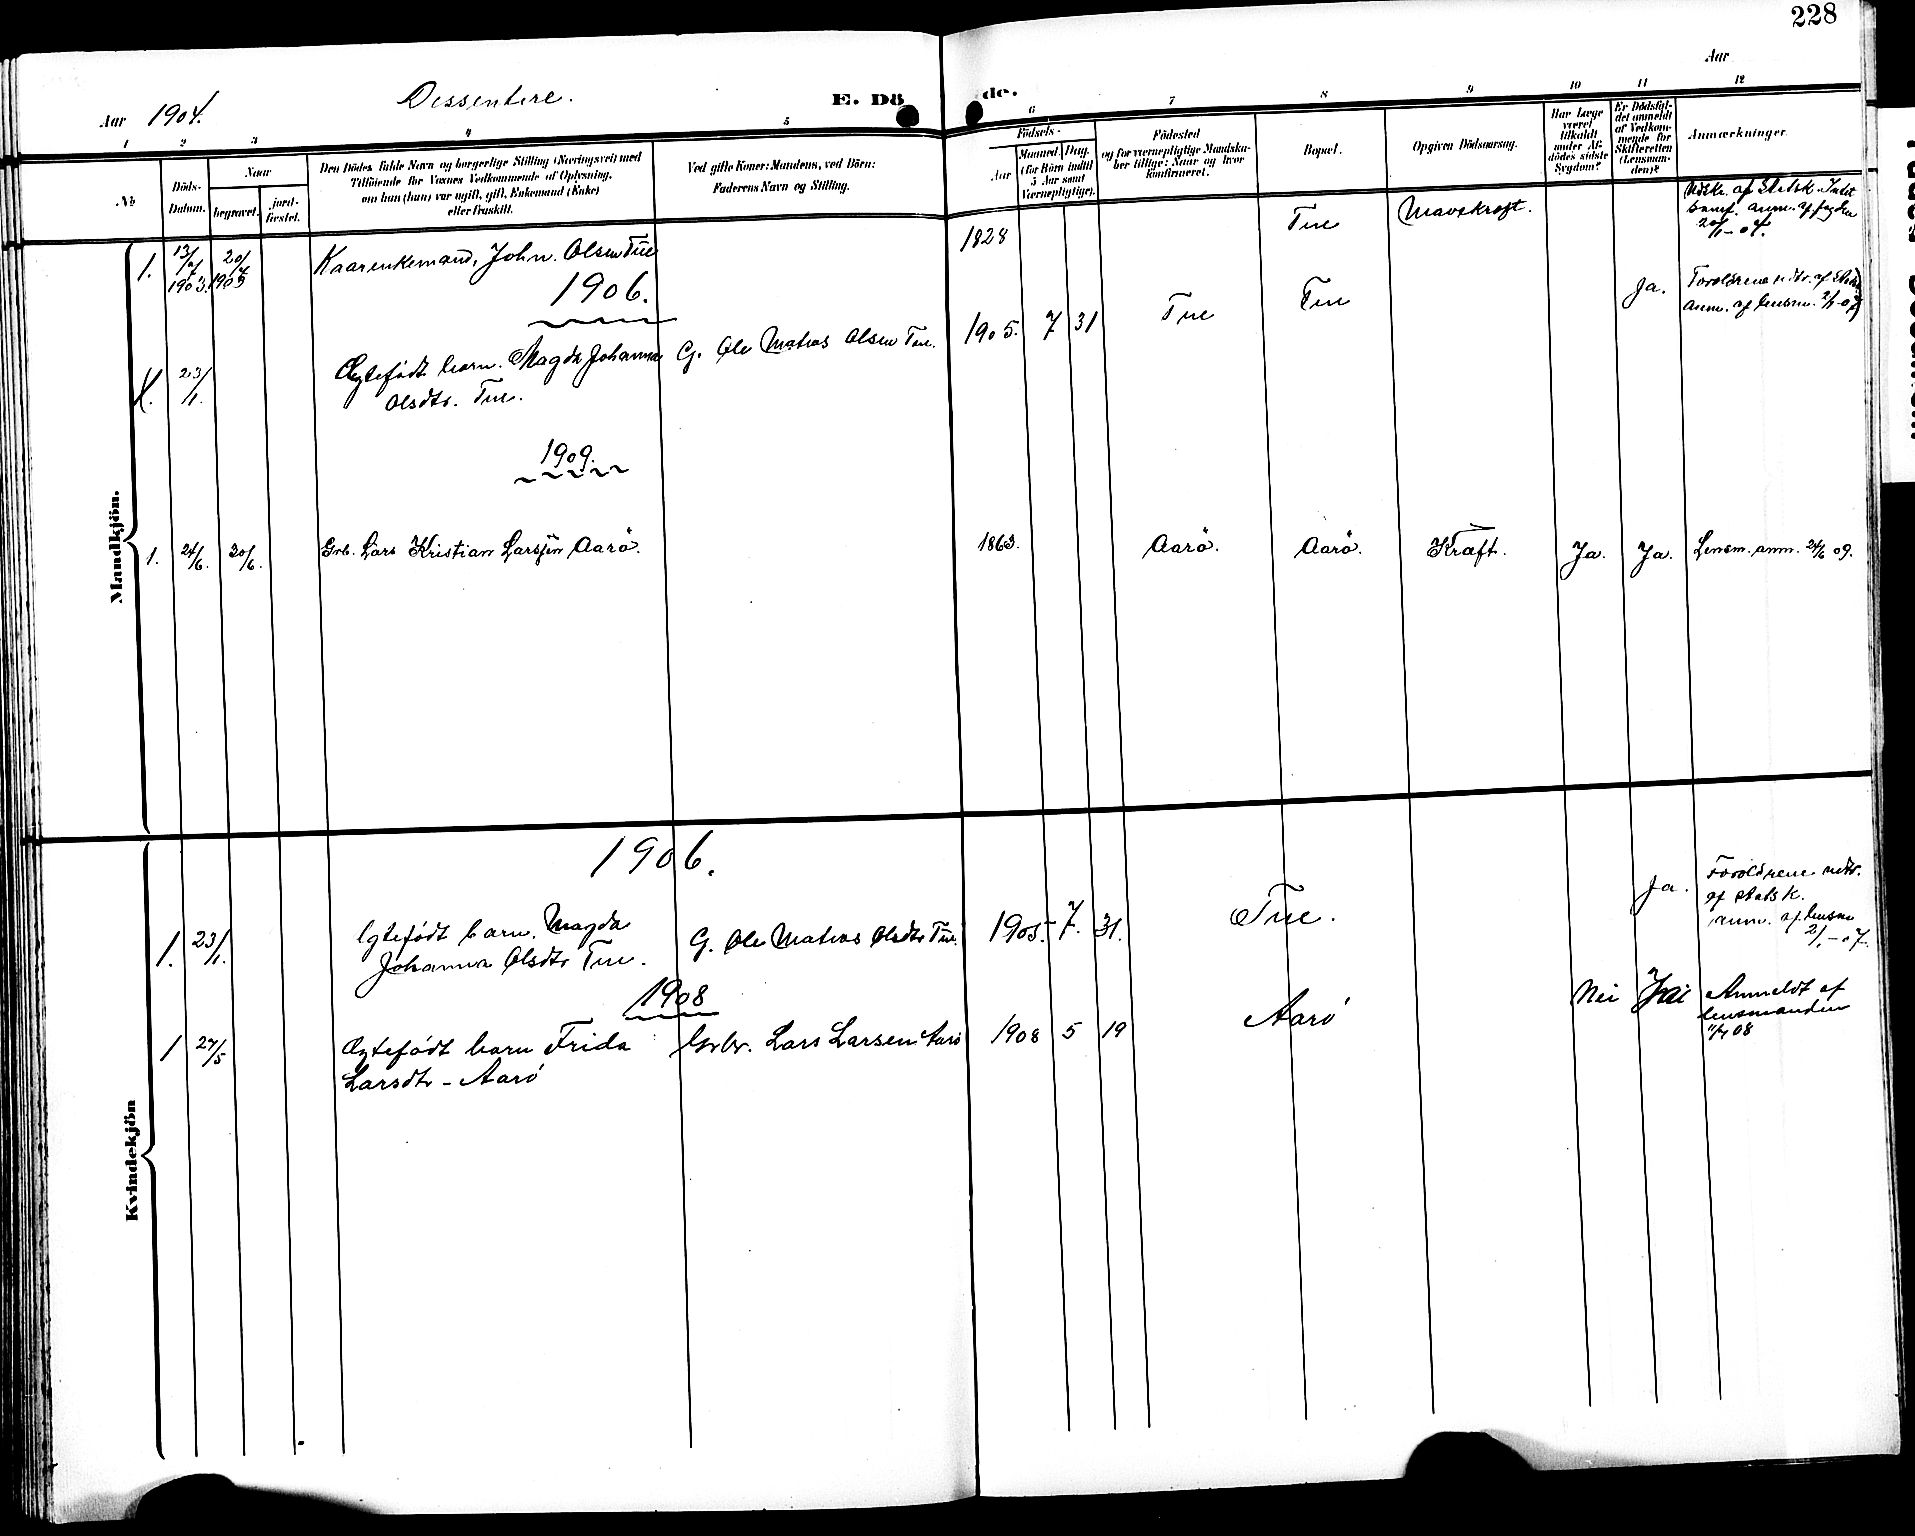 228
Aar 1904.
Dissentere.
E. Döde.
Aar
1 2 3 4 5 6 7 8 9 10 11 12
No
Döds-Datum.
Naar
begravet.
jord-fæstet.
Den Dödes fulde Navn og borgerlige Stilling (Næringsvei) med
Tilföiende for Voxnes Vedkommende af Oplysning,
om han (hun) var ugift, gift, Enkemand (Enke)
eller fraskilt.
Ved gifte Koner: Mandens, ved Börn:
Faderens Navn og Stilling.
Födsels-
Aar
Maaned. Dag.
(for Börn indtil
5 Aar samt
Værnepligtige).
Födested
og for værnepligtige Mandska-
ber tillige: Naar og hvor
konfirmeret.
Bopæl.
Opgiven Dödsaarsag.
Har Læge
været
tilkaldt
under Af-
dödes sidste
Sygdom?
Er Dödsfal-
det anmeldt
af Vedkom-
mende for
Skifteretten
(Lensman-
den)?
Anmærkninger.
Mandkjön.
1. 13/7 1903. 20/7 1903 Kaarenkemand, John. Olsen Tue 1828 Tue Mavekræft.
20/1-04.
1906.
1. 23/1. Ægtefödt barn. Magda Johanna G. Ole Matias Olsen Tue. 1905. 7 31 Tue Tue Ja. Forældrene udtr. af Statsk.
Olsdtr. Tue. Anm. af lensm. 2/1-07
1909.
1. 24/6. 30/6. Grb. Lars Kristian Larssen Aarö. 1863. Aarö. Aarö. Kræft. Ja. Ja. Lensm. anm. 24/6 09.
Kvindekjön
1906.
1. 23/1. Ægtefödt barn. Magda G. Ole Matias Olsdtr Tue. 1905. 7. 31. Tue. Ja. Forældrene udtr.
Johanna Olsdtr Tue. af statsk.
anm. af lensm
2/1-07.
1908
1 27/5 Ægtefödt barn Frida Grbr. Lars Larsen Aarö 1908 5 19 Aarö Nei Ja Anmeldt af
Larsdtr - Aarö lensmanden
08